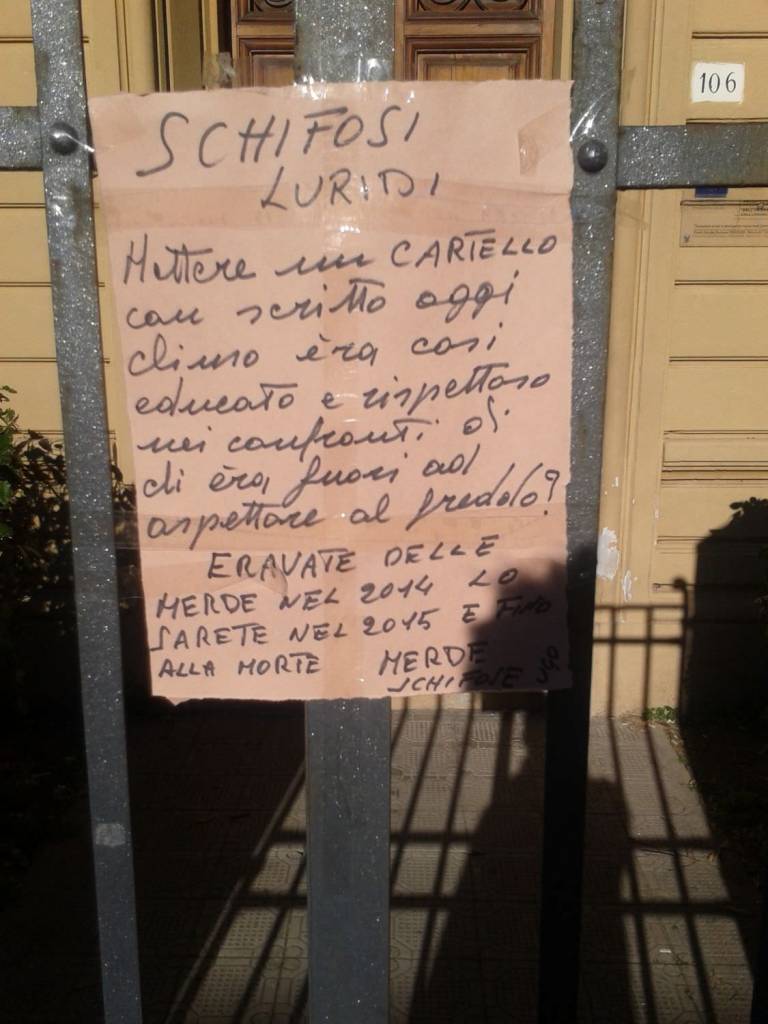 SCHIFOSI
LURIDI
Mettere un CARTELLO
con scritto oggi
chiuso èra cosi
educato e rispettoso
nei confronti di
chi èra fuori ad
aspettare al freddo?
ERAVATE DELLE
MERDE NEL 2014 LO
SARETE NEL 2015 E FINO
ALLA MORTE MERDE
SCHIFOSE
106